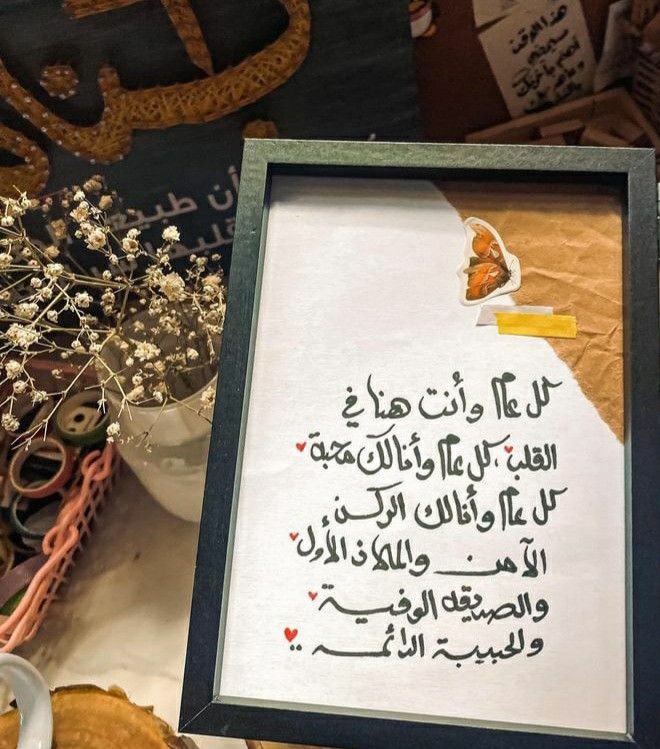 هذا الوقت
أن طبيعة
كل عام وأنت هنا في
القلب، كل عام وأنا لك محبة
كل عام وأنا لك الركن
الآمن والملاذ الأول
والصديقه الوفية
والحبيبة الدائمه ..